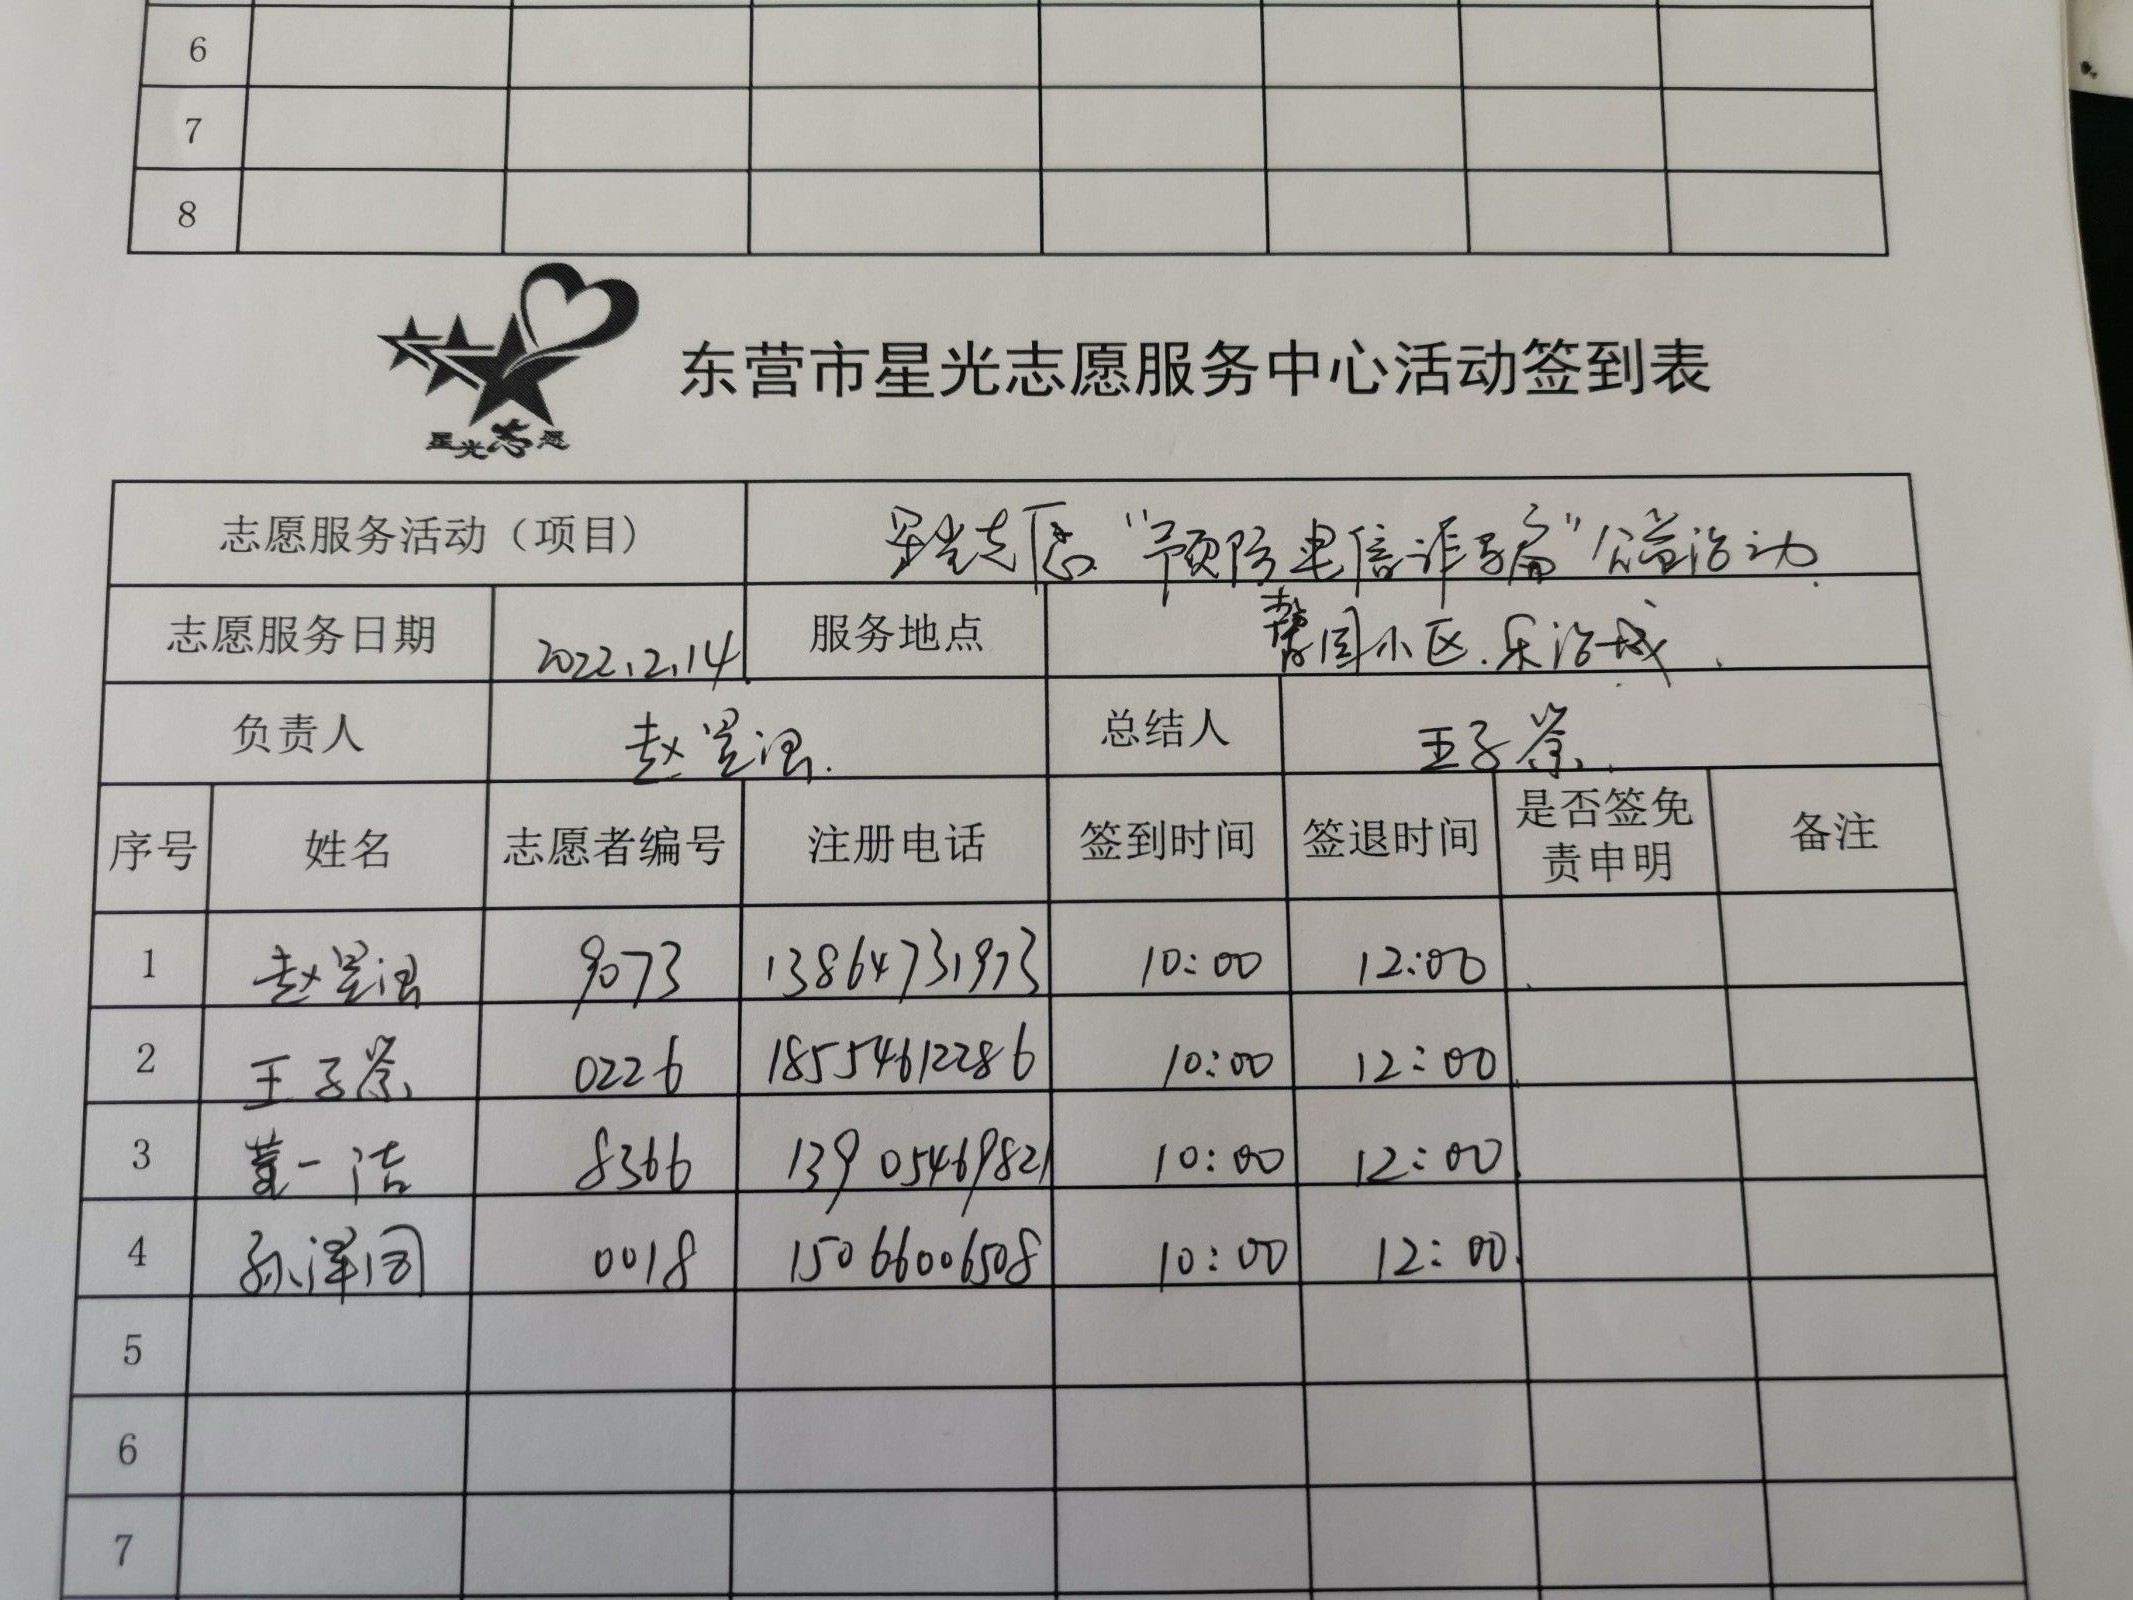 6
7
8
星光志愿
东营市星光志愿服务中心活动签到表
志愿服务活动（项目） 星光志愿“预防电信诈骗”公益活动
志愿服务日期 2022.2.14 服务地点 馨园小区.乐活城
负责人 赵 总结人 王子荣
序号 姓名 志愿者编号 注册电话 签到时间 签退时间 是否签免责申明 备注
1 赵 9073 13864731973 10:00 12:00
2 王子荣 0226 18554612286 10:00 12:00
3 董一洁 8366 13905469821 10:00 12:00
4 孙泽同 0018 15066006508 10:00 12:00
5
6
7